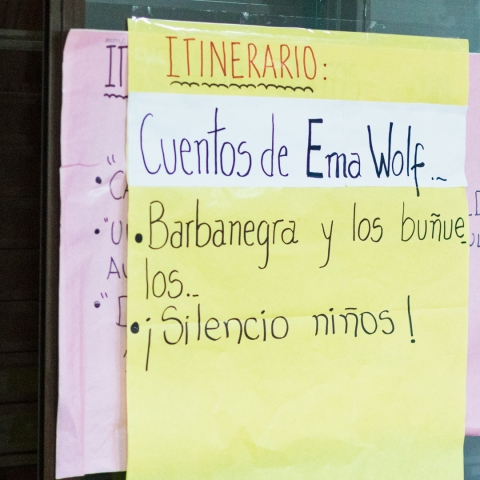 ITINERARIO:
Cuentos de Ema Wolf...
• Barbanegra y los buñue
los...
• ¡Silencio niños!
IT